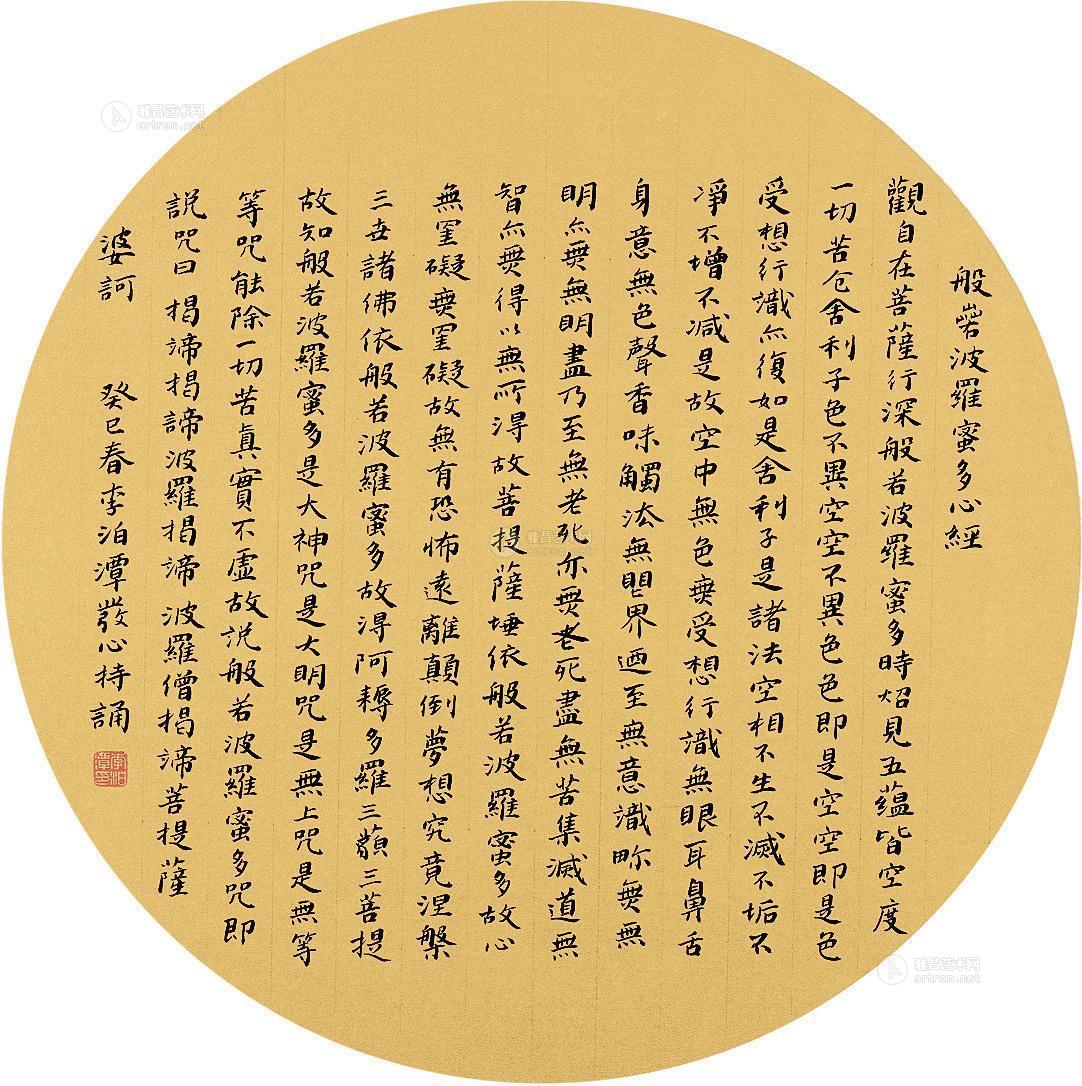 般若波羅蜜多心經
觀自在菩薩行深般若波羅蜜多時炤見五蘊皆空度
一切苦厄舍利子色不異空空不異色色即是空空即是色
受想行識亦復如是舍利子是諸法空相不生不滅不垢不
凈不增不減是故空中無色無受想行識無眼耳鼻舌
身意無色聲香味觸法無眼界迺至無意識界無無
明亦無無明盡乃至無老死亦無老死盡無苦集滅道無
智亦無得以無所得故菩提薩埵依般若波羅蜜多故心
無罣礙無罣礙故無有恐怖遠離顛倒夢想究竟涅槃
三世諸佛依般若波羅蜜多故得阿耨多羅三藐三菩提
故知般若波羅蜜多是大神咒是大明咒是無上咒是無等
等咒能除一切苦真實不虛故說般若波羅蜜多咒即
說咒曰揭諦揭諦波羅揭諦波羅僧揭諦菩提薩
婆訶 癸巳春李泊潭發心持誦
李泊潭印
雅昌艺术网
artron.net
雅昌艺术网
artron.net
雅昌艺术网
artron.net